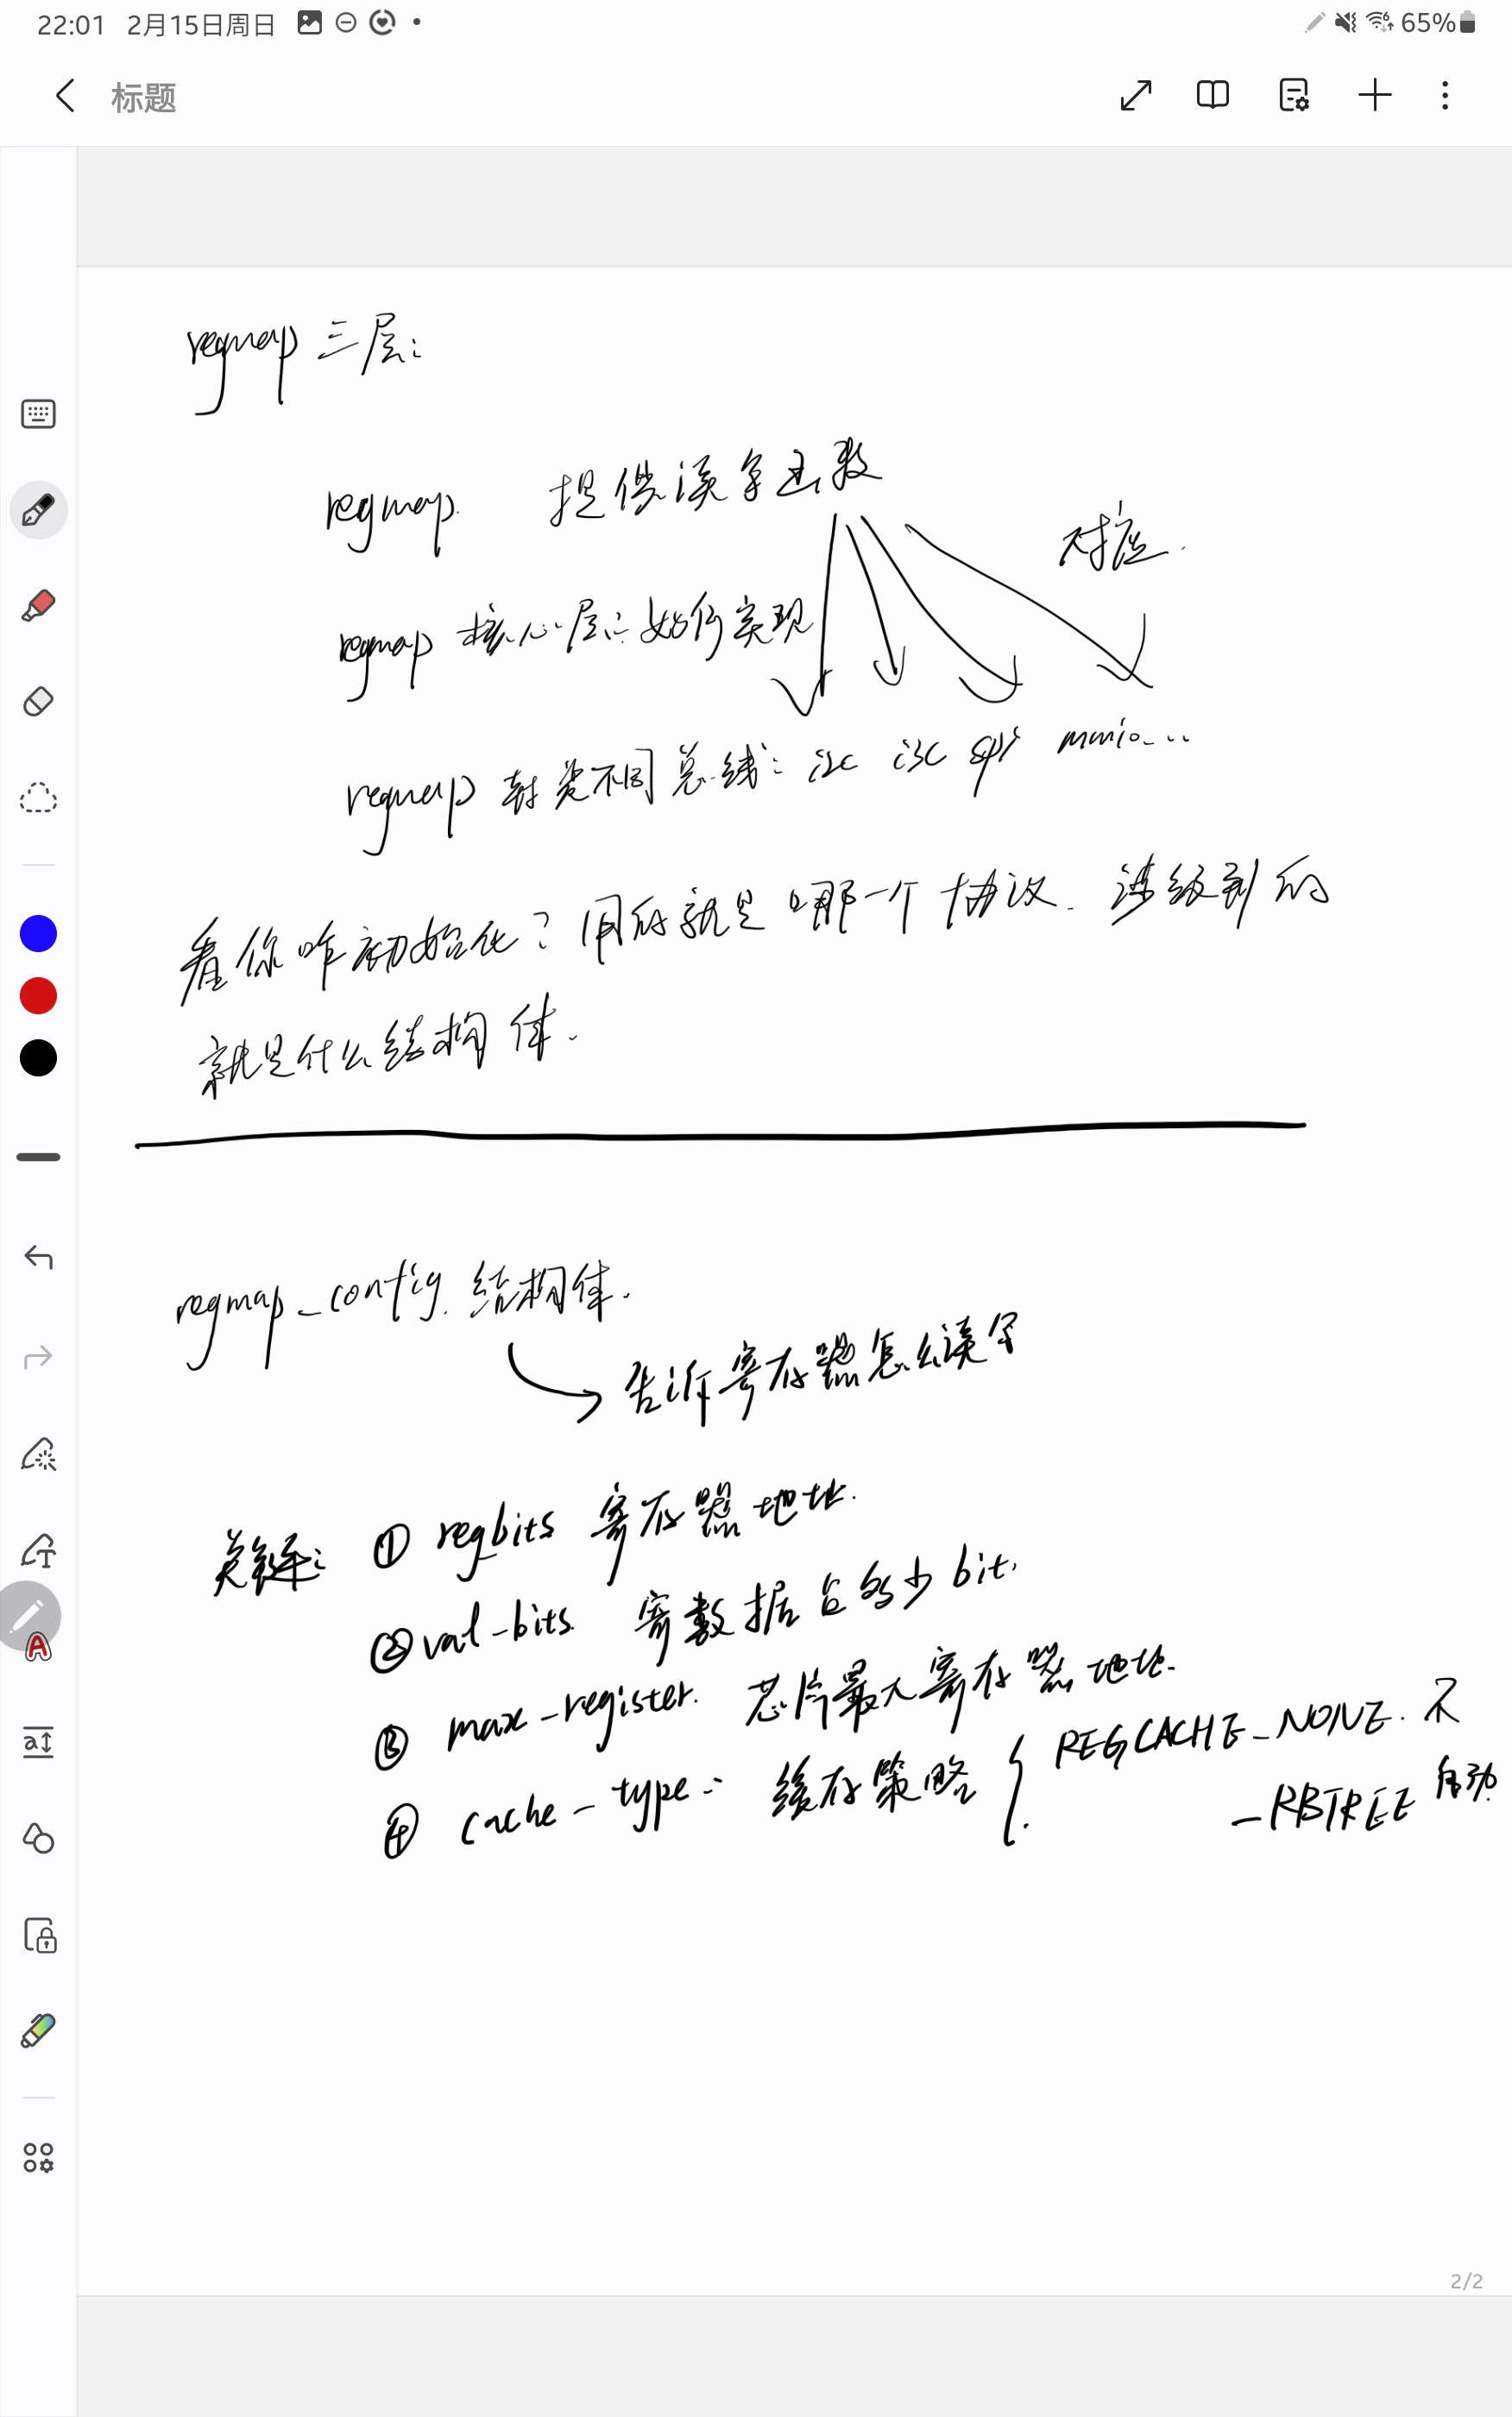 22:01 2月15日周日 65%
标题
regmap 三层:
regmap. 提供读写函数
对应.
regmap 核心层: 如何实现
regmap 封装不同总线: i2c i3c spi mmio...
看你咋初始化? 用的就是哪一个协议. 涉及到的
就是什么结构体.
regmap_config. 结构体.
告诉寄存器怎么读写
关键: ① regbits 寄存器地址.
② val-bits. 寄数据占多少bit.
③ max-register. 芯片最大寄存器地址.
④ cache-type: 缓存策略 { REGCACHE_NONE. 不
_RBTREE 自动.
a
A
2/2